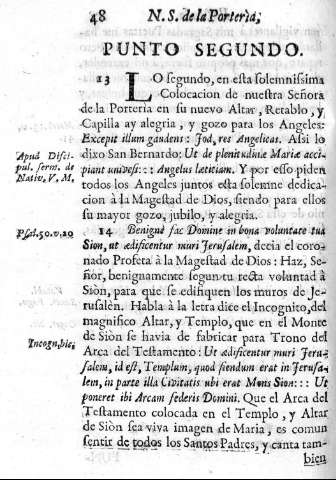 48 N. S. de la Porterìa,
PUNTO SEGUNDO.
13 LO segundo, en esta solemnissima
Colocacion de nuestra Señora
de la Porterìa en su nuevo Altar, Retablo, y
Capilla ay alegria, y gozo para los Angeles:
Excepit illum gaudens: Jod, res Angelicas. Assi lo
dixo San Bernardo: Ut de plenitudine Mariæ acci-
Apud Disci-
pul. serm. de
Nativ. V. M.
piant universi::: Angelus lætitiam. Y por esso piden
todos los Angeles juntos esta solemne dedica-
cion à la Magestad de Dios, siendo para ellos
su mayor gozo, jubilo, y alegria.
Psal. 50. v. 20
14 Benignè fac Domine in bona voluntate tua
Sion, ut ædificentur muri Jerusalem, decia el coro-
nado Profeta à la Magestad de Dios: Haz, Se-
ñor, benignamente segun tu recta voluntad à
Siòn, para que se edifiquen los muros de Je-
rusalèn. Habla à la letra dice el Incognito, del
magnifico Altar, y Templo, que en el Monte
de Siòn se havia de fabricar para Trono del
Incogn. hic,
Arca del Testamento: Ut ædificentur muri Jeru-
salem, id est, Templum, quod fiendum erat in Jerusa-
lem, in parte illa Civitatis ubi erat Mons Sion::: Ut
poneret ibi Arcam federis Domini. Que el Arca del
Testamento colocada en el Templo, y Altar
de Siòn sea viva imagen de Maria, es comun
sentir de todos los Santos Padres, y canta tam-
bien